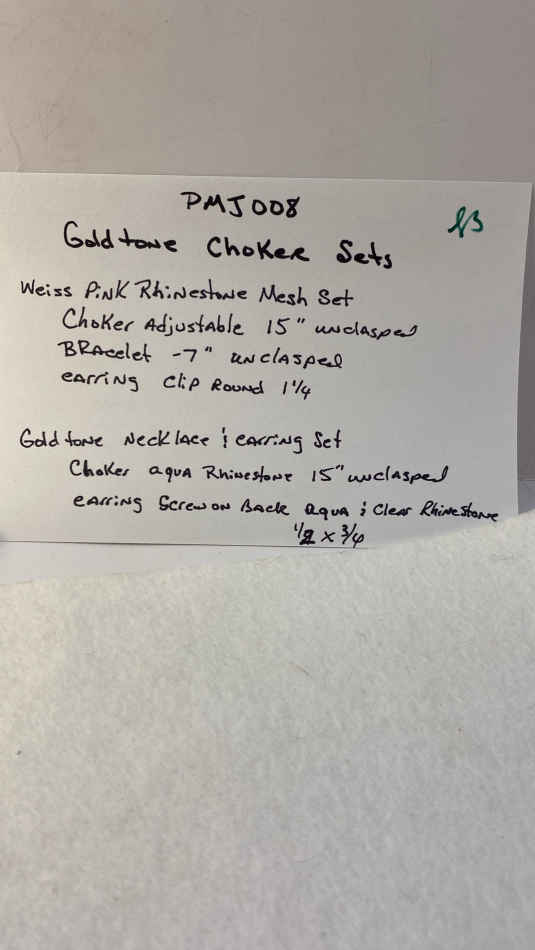 PMJ008
Goldtone Choker Sets
Weiss Pink Rhinestone Mesh Set
Choker Adjustable 15" unclasped
Bracelet -7" unclasped
earring Clip Round 1 1/4
Goldtone Necklace & earring Set
Choker aqua Rhinestone 15" unclasped
earring Screw on Back aqua & Clear Rhinestone
1/2 x 3/4